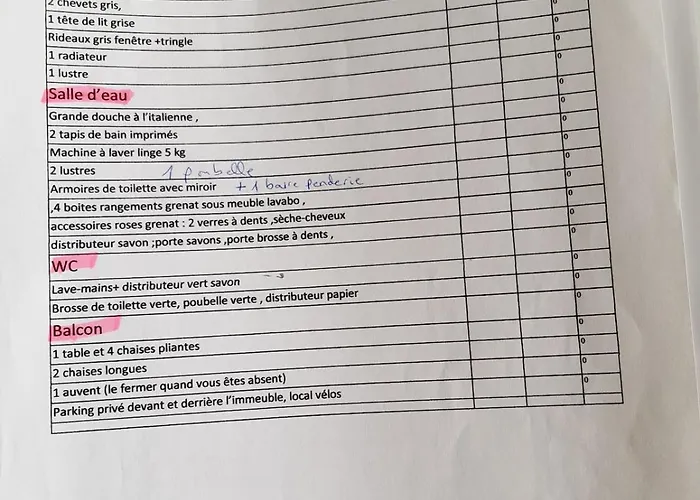 2 chevets gris,
1 tête de lit grise
Rideaux gris fenêtre +tringle
1 radiateur
1 lustre
Salle d'eau
Grande douche à l'italienne ,
2 tapis de bain imprimés
Machine à laver linge 5 kg
2 lustres 1 poubelle
Armoires de toilette avec miroir + 1 barre penderie
,4 boites rangements grenat sous meuble lavabo ,
accessoires roses grenat : 2 verres à dents ,sèche-cheveux
distributeur savon ;porte savons ,porte brosse à dents ,
WC
Lave-mains+ distributeur vert savon
Brosse de toilette verte, poubelle verte , distributeur papier
Balcon
1 table et 4 chaises pliantes
2 chaises longues
1 auvent (le fermer quand vous êtes absent)
Parking privé devant et derrière l'immeuble, local vélos